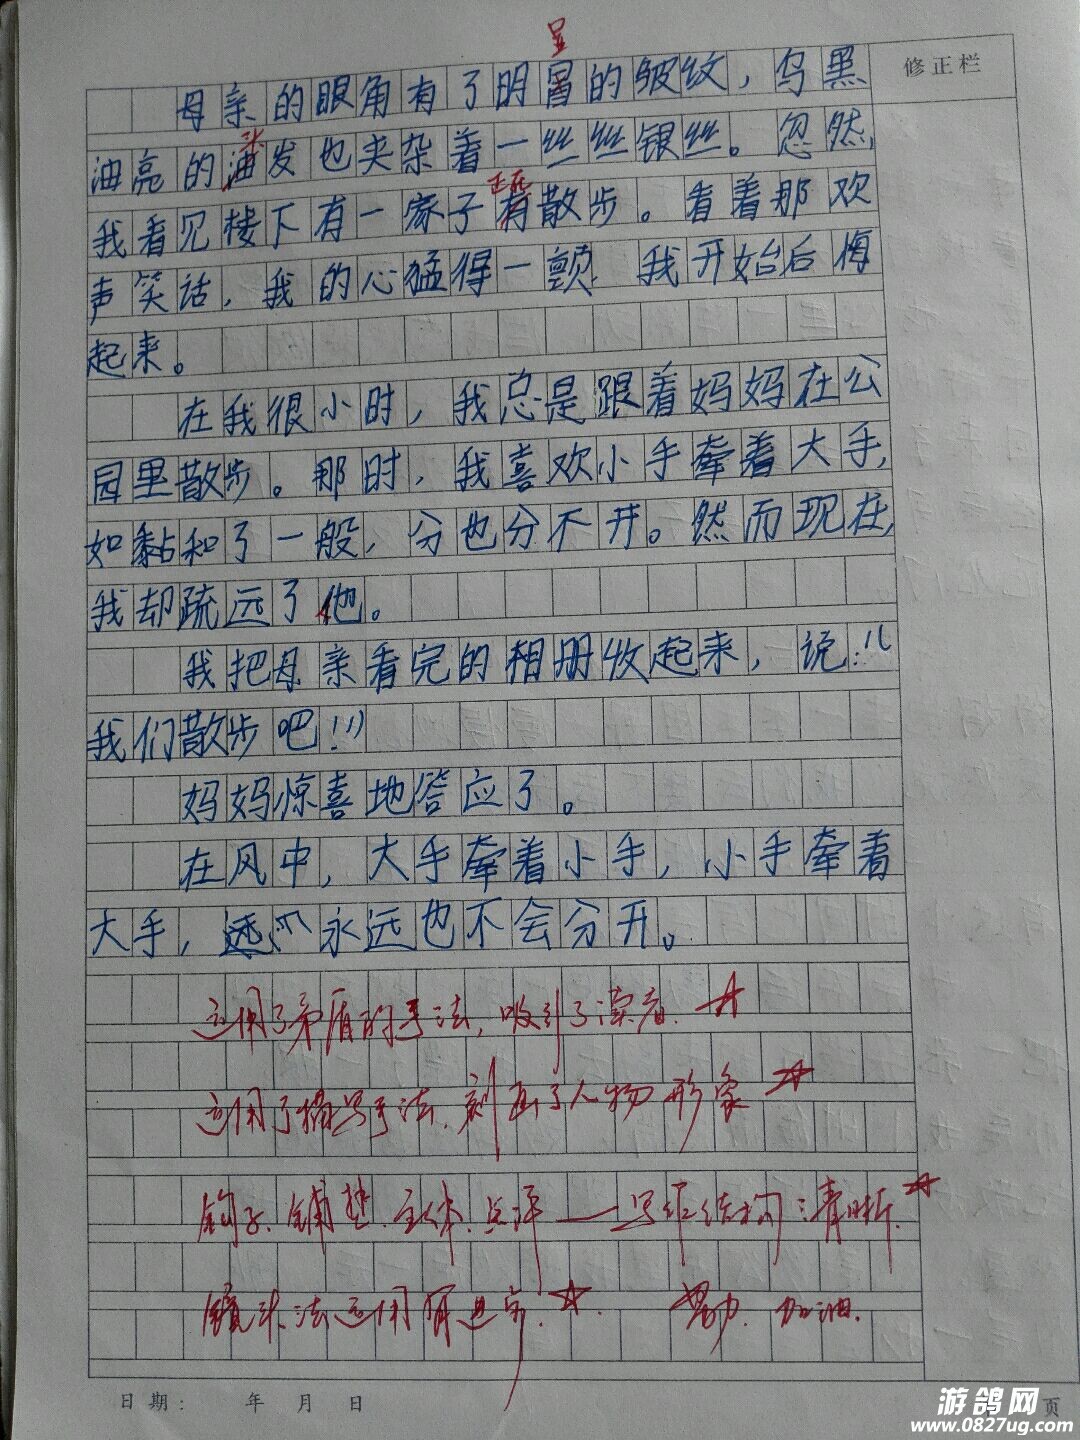 显
修正栏
母亲的眼角有了明冒的皱纹，乌黑
头
油亮的油发也夹杂着一丝丝银丝。忽然，
正在
我看见楼下有一家子有散步。看着那欢
声笑话，我的心猛得一颤 我开始后悔
起来。
在我很小时，我总是跟着妈妈在公
园里散步。那时，我喜欢小手牵着大手，
如黏和了一般，分也分不开。然而现在，
我却疏远了他。
我把母亲看完的相册收起来，说：“
我们散步吧！”
妈妈惊喜地答应了。
在风中，大手牵着小手，小手牵着
大手，远 永远也不会分开。
运用了矛盾的手法，吸引了读者。☆
运用了描写手法，刻画了人物形象☆
钩子、铺垫、主体、点评——写作结构清晰。☆
镜头法运用有进步。☆ 努力、加油。
日期： 年 月 日
页
游鸽网
www.0827ug.com